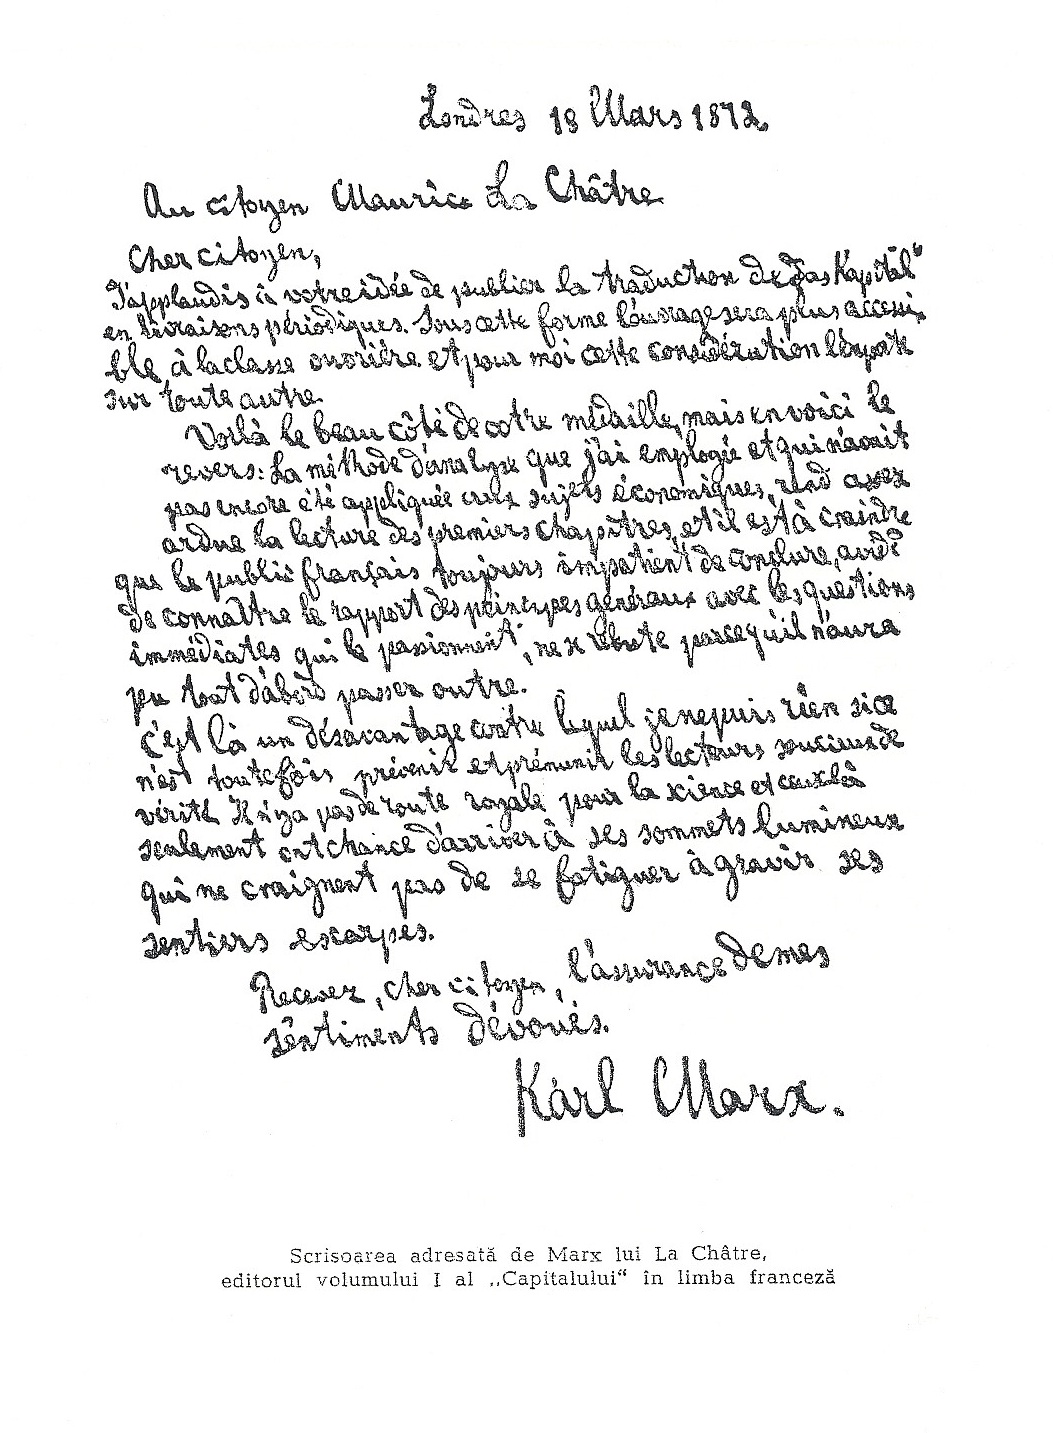 Londres 18 Mars 1872
Au citoyen Maurice La Châtre
Cher citoyen,
J'applaudis à votre idée de publier la traduction de „Das Kapital“
en livraisons périodiques. Sous cette forme l'ouvrage sera plus accessi
ble à la classe ouvrière et pour moi cette considération l'emporte
sur toute autre.
Voilà le beau côté de votre médaille, mais en voici le
revers: La méthode d'analyse que j'ai employée et qui n'avait
pas encore été appliquée aux sujets économiques, rend assez
ardue la lecture des premiers chapîtres, et il est à craindre
que le public français toujours impatient de conclure, avide
de connaître le rapport des principes généraux avec les questions
immédiates qui le passionnent, ne se rebute parcequ'il n'aura
pu tout d'abord passer outre.
C'est là un désavantage contre lequel je ne puis rien si ce
n'est toutefois prévenir et prémunir les lecteurs soucieux de
vérité. Il n'y a pas de route royale pour la science et ceux là
seulement ont chance d'arriver à ses sommets lumineux
qui ne craignent pas de se fatiguer à gravir ses
sentiers escarpés.
Recevez, cher citoyen, l'assurance de mes
sentiments dévoués.
Karl Marx.
Scrisoarea adresată de Marx lui La Châtre,
editorul volumului I al „Capitalului“ în limba franceză